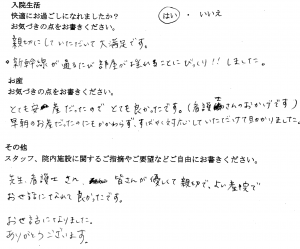 入院生活
快適にお過ごしになれましたか? はい ・ いいえ
お気づきの点をお書きください。
親切にしていただいて大満足です。
・新幹線が通るたび部屋が揺れることにびっくり!!しました。
お産
お気づきの点をお書きください。
とても安産だったのでとても良かったです。(看護士さんのおかげです)
早朝のお産だったのにもかかわらず、すばやく対応していただけて助かりました。
その他
スタッフ、院内施設に関するご指摘やご要望などご自由にお書きください。
先生、看護士さん 皆さんが優しくて親切で、よい産院で
お世話になれて良かったです。
お世話になりました。
ありがとうございます。